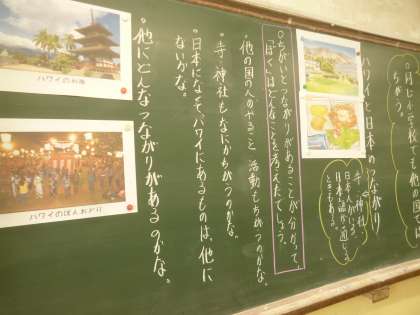 ちがう。
ハワイと日本のつながり
寺、神社
日本人がいる
日本語が通じる
ときもある。
ちがいとつながりがあることが分かって、
「ぼく」はどんなことを考えたでしょう。
・他の国の人のやること 活動もちがうのかな。
・寺・神社もなにかちがうのかな。
・日本になくて、ハワイにあるものは、他に
ないかな。
・他にどんなつながりがあるのかな。
ハワイのお寺
ハワイのぼんおどり